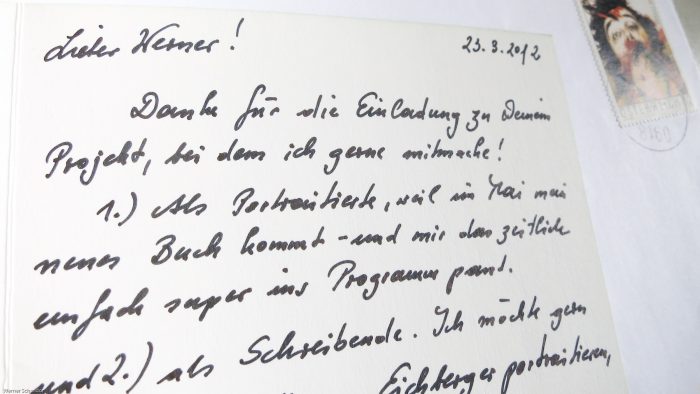 Lieber Werner!
23.3.2012
Danke für die Einladung zu Deinem
Projekt, bei dem ich gerne mitmache!
1.) Als Portraitierte, weil im Mai mein
neues Buch kommt - und mir das zeitlich
einfach super ins Programm passt.
und 2.) als Schreibende. Ich möchte gern
Eichberger portraitieren,
8160
Werner